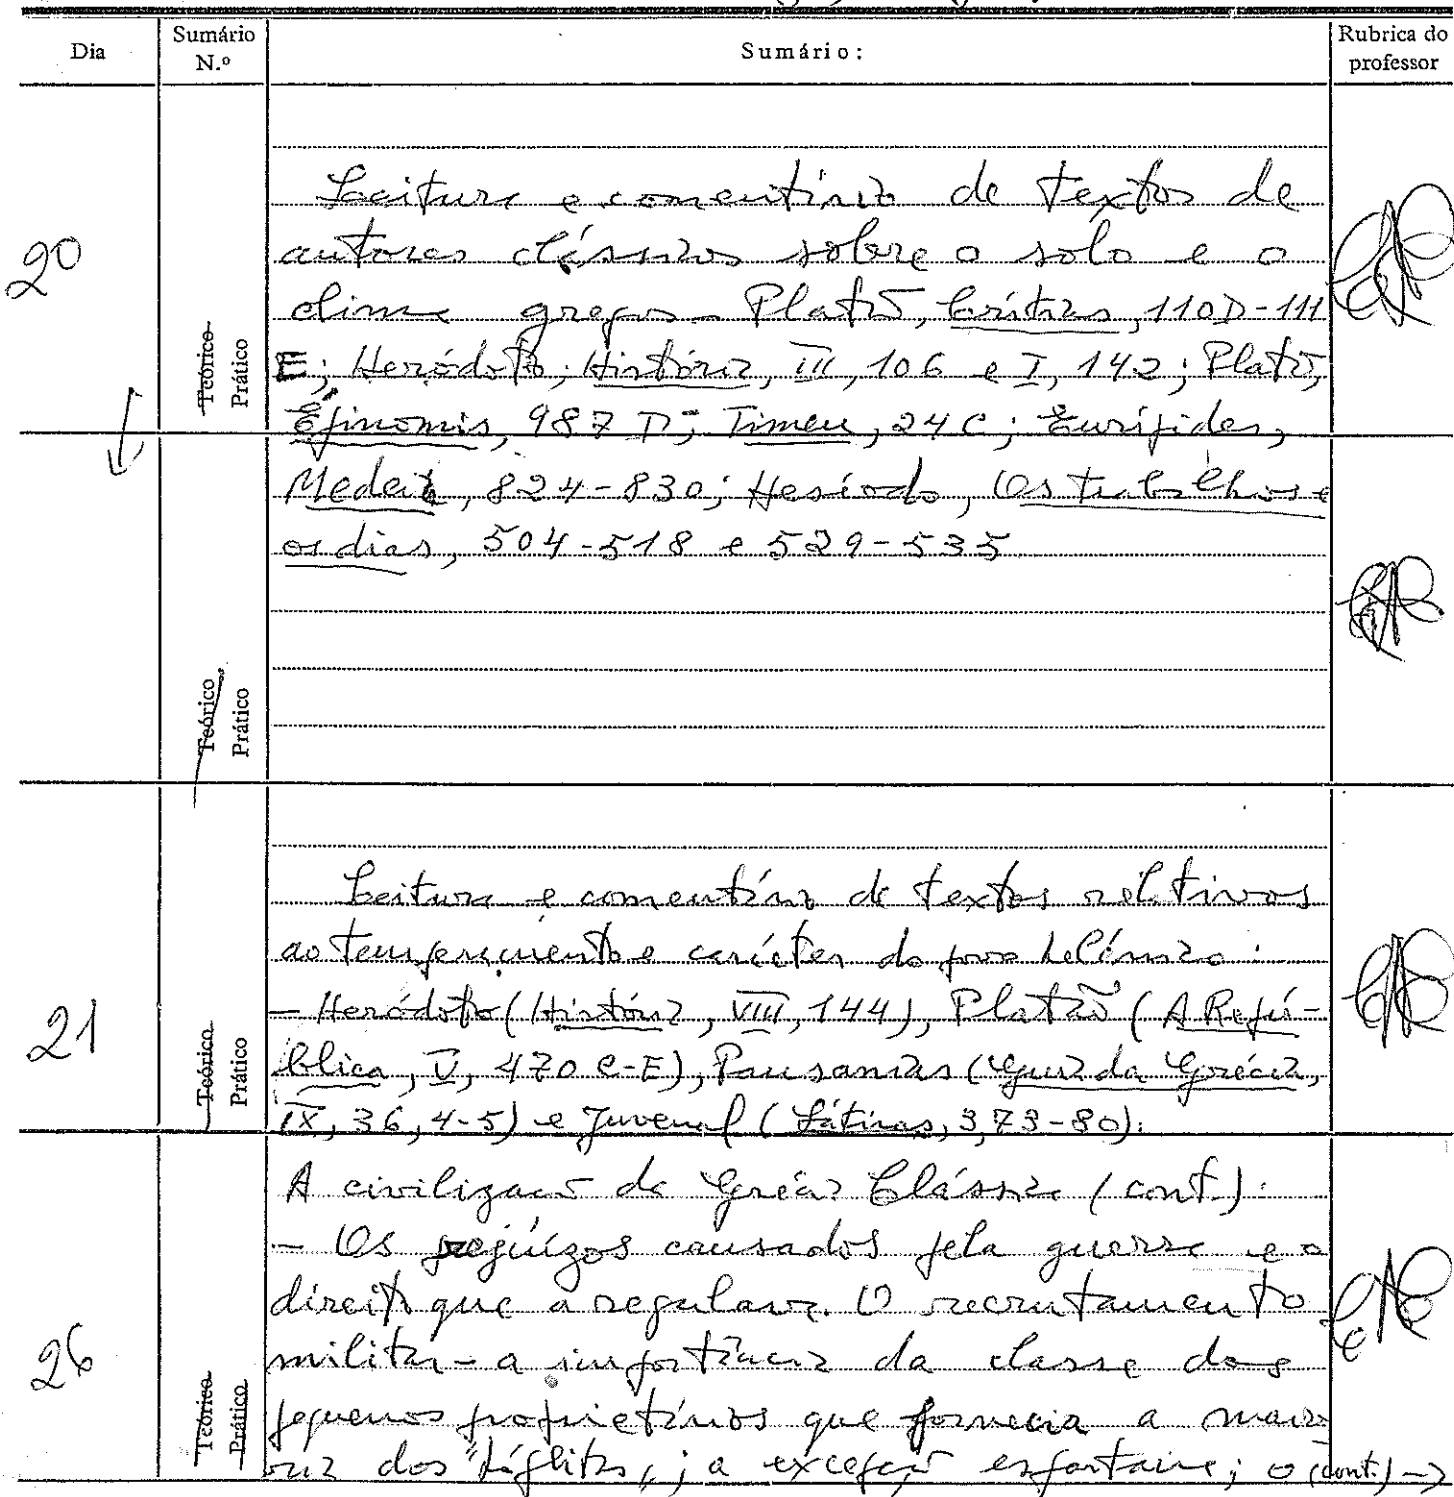 Dia
Sumário N.º
Sumário:
Rubrica do professor
20
Teórico
Prático
Leitura e comentário de textos de
autores clássicos sobre o solo e o
clima gregos – Platão, Crítias, 110D-111
E; Heródoto, História, III, 106 e I, 142; Platão,
Epínomis, 987 D; Timeu, 24C; Eurípides,
Teórico
Prático
Medeia, 824-830; Hesíodo, Os trabalhos e
os dias, 504-518 e 529-535
21
Teórico
Prático
Leitura e comentário de textos relativos
ao temperamento e carácter do povo helénico:
– Heródoto (História, VIII, 144), Platão (A Repú-
blica, V, 470 C-E), Pausanias (Guia da Grécia,
IX, 36, 4-5) e Juvenal (Sátiras, 3, 73-80).
26
Teórico
Prático
A civilização da Grécia Clássica (cont.):
– Os prejuízos causados pela guerra e o
direito que a regulava. O recrutamento
militar – a importância da classe dos
pequenos proprietários que fornecia a maio-
ria dos "hóplitas"; a excepção espartana; o (cont.) →